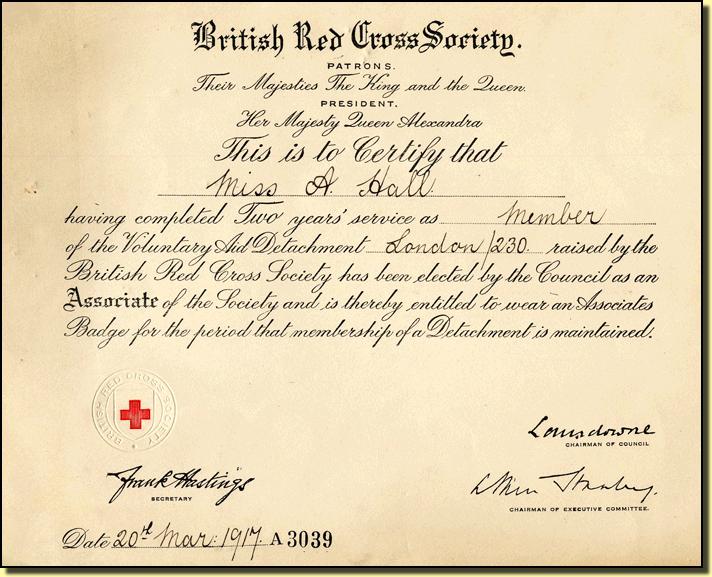 British Red Cross Society.
PATRONS.
Their Majesties The King and the Queen.
PRESIDENT.
Her Majesty Queen Alexandra
This is to Certify that
Miss A. Hall.
having completed Two years' service as Member
of the Voluntary Aid Detachment London/230. raised by the
British Red Cross Society has been elected by the Council as an
Associate of the Society and is thereby entitled to wear an Associates
Badge for the period that membership of a Detachment is maintained.
BRITISH RED CROSS SOCIETY
Lansdowne
CHAIRMAN OF COUNCIL
Frank Hastings
SECRETARY
Stanley.
CHAIRMAN OF EXECUTIVE COMMITTEE.
Date 20th Mar: 1917. A 3039